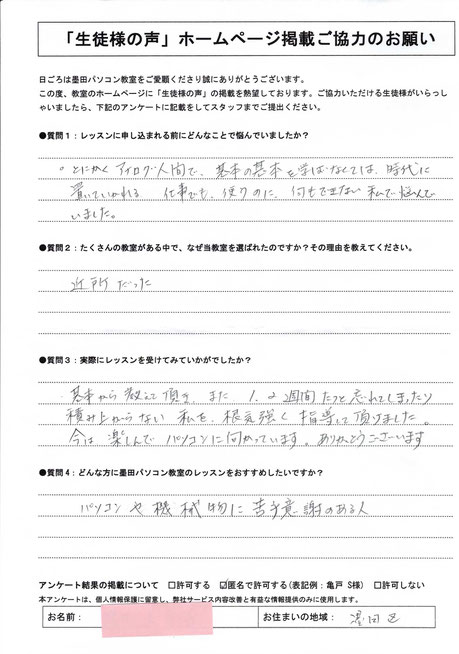 「生徒様の声」ホームページ掲載ご協力のお願い
日ごろは墨田パソコン教室をご愛顧くださり誠にありがとうございます。
この度、教室のホームページに「生徒様の声」の掲載を熱望しております。ご協力いただける生徒様がいらっし
ゃいましたら、下記のアンケートに記載をしてスタッフまでご提出ください。
●質問1：レッスンに申し込まれる前にどんなことで悩んでいましたか？
。とにかくアナログ人間で、基本の基本を学ばなくては、時代に
置いていかれる 仕事でも、使うのに、何もできない私で悩んで
いました。
●質問2：たくさんの教室がある中で、なぜ当教室を選ばれたのですか？その理由を教えてください。
近所だった
●質問3：実際にレッスンを受けてみていかがでしたか？
・基本から教えて頂き、また 1.2週間たつと忘れてしまったり
積み上がらない私を、根気強く指導して頂けました。
今は楽しんでパソコンに向かっています。ありがとうございます
●質問4：どんな方に墨田パソコン教室のレッスンをおすすめしたいですか？
パソコンや機械物に苦手意識のある人
アンケート結果の掲載について □許可する ☑匿名で許可する(表記例：亀戸 S様) □許可しない
本アンケートは、個人情報保護に留意し、弊社サービス内容改善と有益な情報提供のみに使用します。
お名前： お住まいの地域： 墨田区